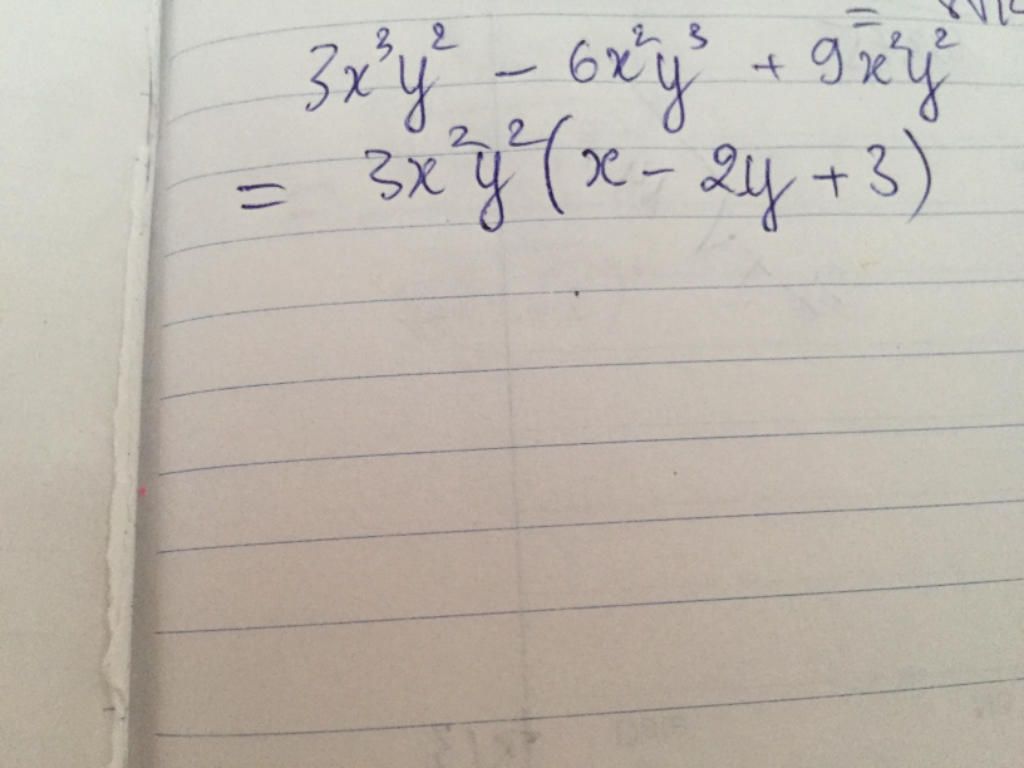 =
3x³y² - 6x²y³ + 9x²y²
= 3x²y²(x - 2y + 3)